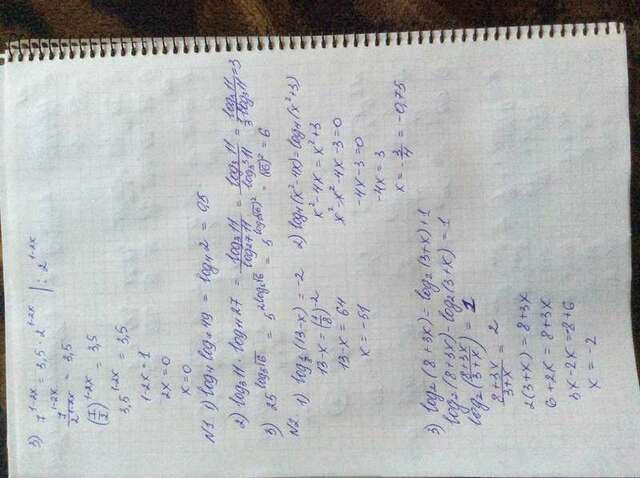 3) 7^(1-2x) = 3,5 · 2^(1-2x) | : 2^(1-2x)
7^(1-2x) / 2^(1-2x) = 3,5
(7/2)^(1-2x) = 3,5
3,5^(1-2x) = 3,5
1-2x = 1
2x = 0
x = 0
N1 1) log₄ log₇ 49 = log₄ 2 = 0,5
2) log₃ 11 · log₁₁ 27 = log₃ 11 / log₂₇ 11 = log₃ 11 / log₃³ 11 = log₃ 11 / (1/3 log₃ 11) = 3
3) 25^(log₅ √6) = 5^(2 log₅ √6) = 5^(log₅(√6)²) = (√6)² = 6
N2 1) log_(1/8) (13-x) = -2
13-x = (1/8)^(-2)
13-x = 64
x = -51
2) log₄(x²-4x) = log₄(x²+3)
x²-4x = x²+3
x²-x²-4x-3=0
-4x-3=0
-4x = 3
x = -3/4 = -0,75
3) log₂ (8+3x) = log₂ (3+x)+1
log₂ (8+3x) - log₂(3+x) = 1
log₂ ((8+3x)/(3+x)) = 1
(8+3x)/(3+x) = 2
2(3+x) = 8+3x
6+2x = 8+3x
3x-2x=-8+6
x = -2